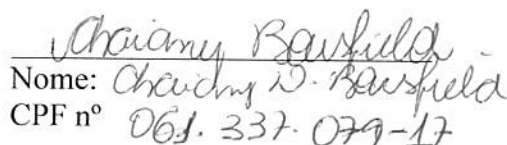 Chaiany Bausfield
Nome: Chaiany D. Bausfield
CPF nº 061.337.079-17